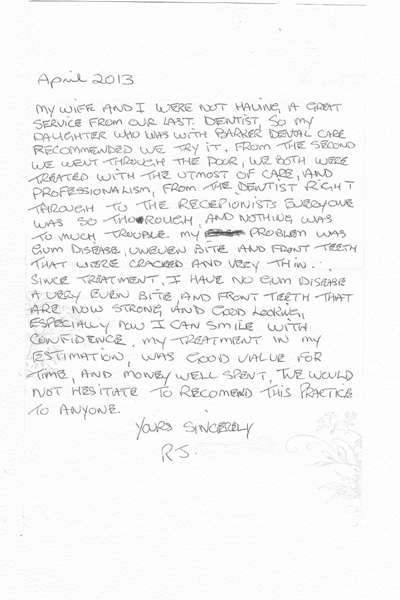 April 2013
MY WIFE AND I WERE NOT HAVING A GREAT
SERVICE FROM OUR LAST DENTIST, SO MY
DAUGHTER WHO WAS WITH BARKER DENTAL CARE
RECOMMENDED WE TRY IT. FROM THE SECOND
WE WENT THROUGH THE DOOR, WE BOTH WERE
TREATED WITH THE UTMOST OF CARE, AND
PROFESSIONALISM, FROM THE DENTIST RIGHT
THROUGH TO THE RECEPIONISTS EVERYONE
WAS SO THOROUGH, AND NOTHING WAS
TO MUCH TROUBLE. MY PROBLEM WAS
GUM DISEASE, UNEVEN BITE AND FRONT TEETH
THAT WERE CRACKED AND VERY THIN.
SINCE TREATMENT, I HAVE NO GUM DISEASE
A VERY EVEN BITE, AND FRONT TEETH THAT
ARE NOW STRONG AND GOOD LOOKING,
ESPECIALLY NOW I CAN SMILE WITH
CONFIDENCE. MY TREATMENT IN MY
ESTIMATION, WAS GOOD VALUE FOR
TIME, AND MONEY WELL SPENT, WE WOULD
NOT HESITATE TO RECOMEND THIS PRACTICE
TO ANYONE.
YOURS SINCERELY
RJ.